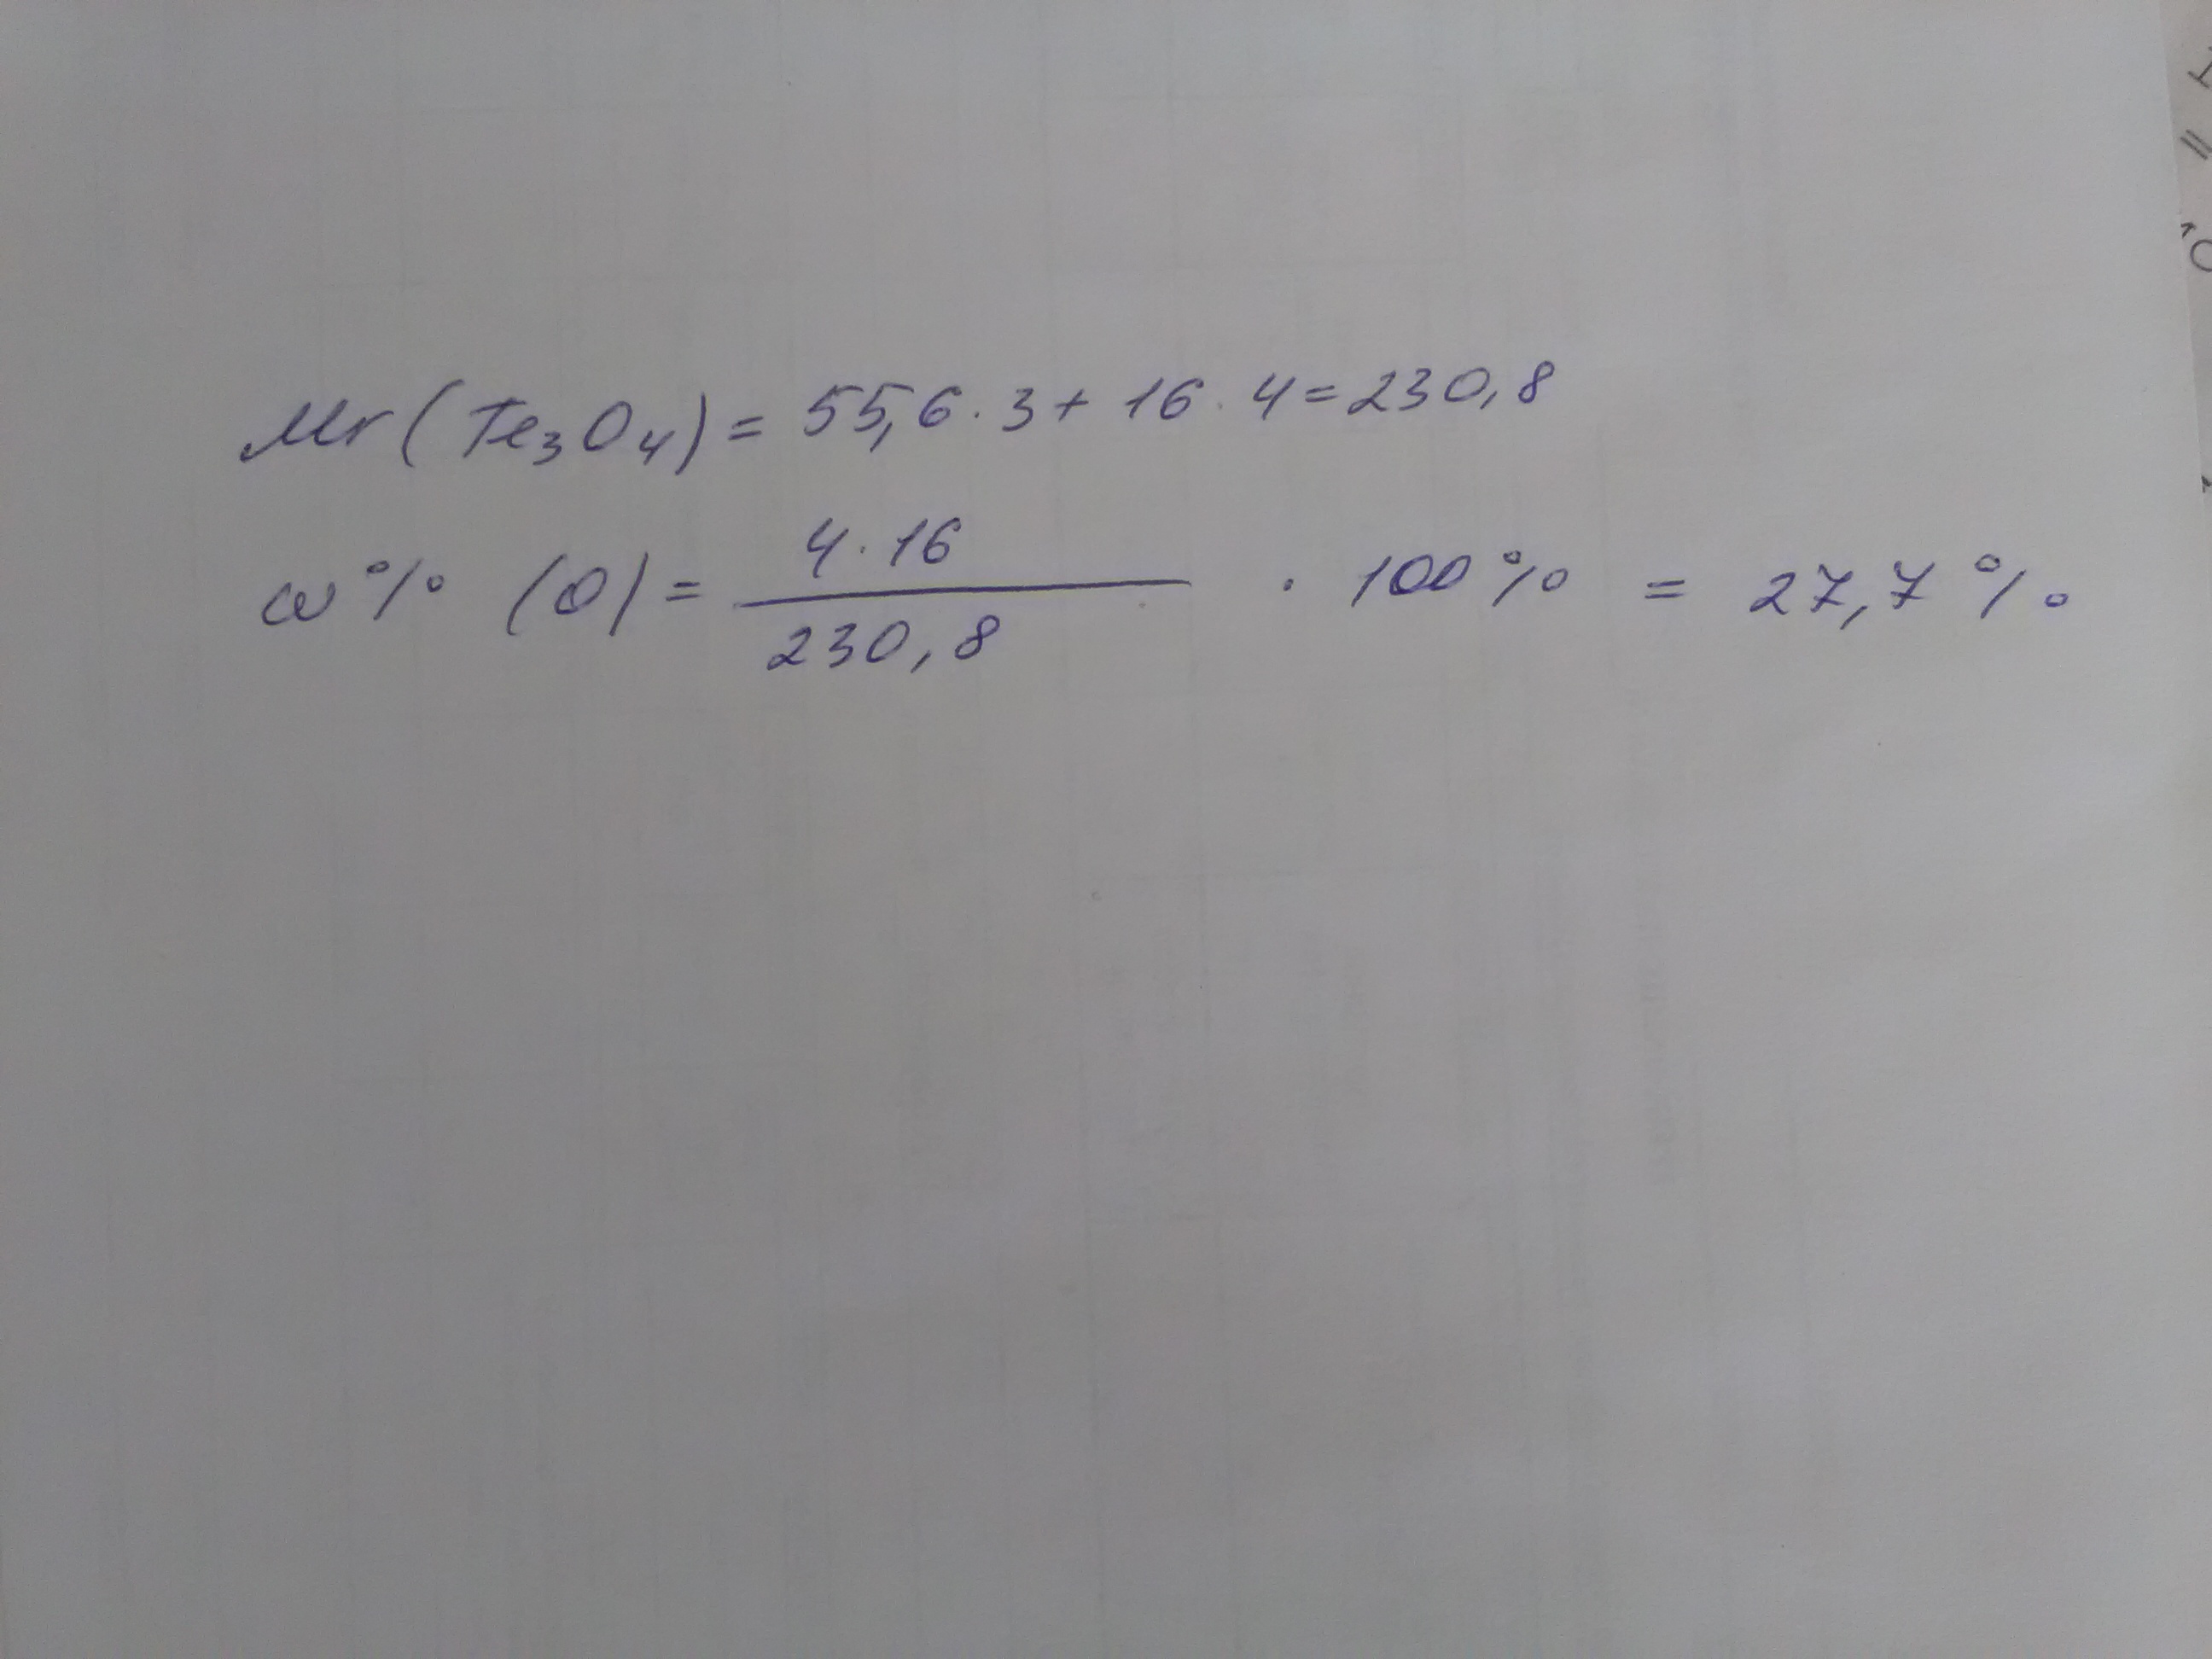 Mr(Fe₃O₄) = 55,6·3+ 16·4=230,8
ω% (O) = 4·16 / 230,8 · 100% = 27,7%